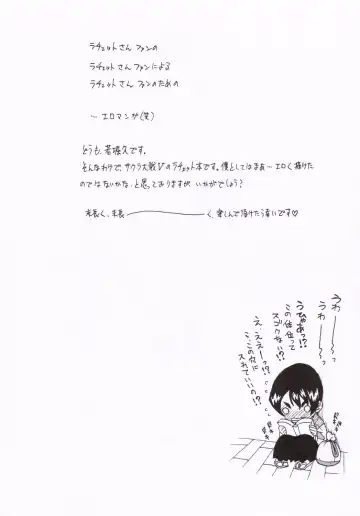 ラチェットさんファンの
ラチェットさんファンによる
ラチェットさんファンのための
…エロマンガ(笑)
どうも、若塚久です。
そんなわけで、サクラ大戦Vのラチェット本です。僕としてはまあ…エロく描けた
のではないかな、と思っておりますが いかがでしょう?
末長く、末長――――く、楽しんで頂けたら幸いです♡
うわ――っ
うわ――っ
うひゃあっ!?
この体位って
スゴクない!?
え・ええーっ!?
こ、この穴に
入れていいの!?